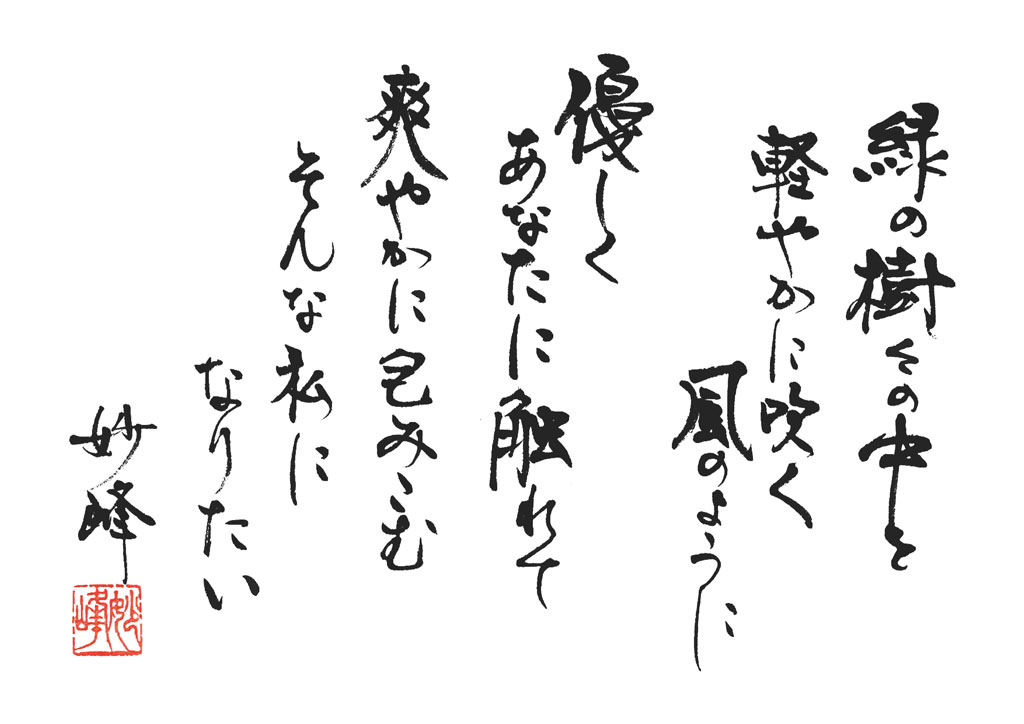 緑の樹々の中を
軽やかに吹く
風のように
優しく
あなたに触れて
爽やかに包みこむ
そんな私に
なりたい
妙峰
妙峰